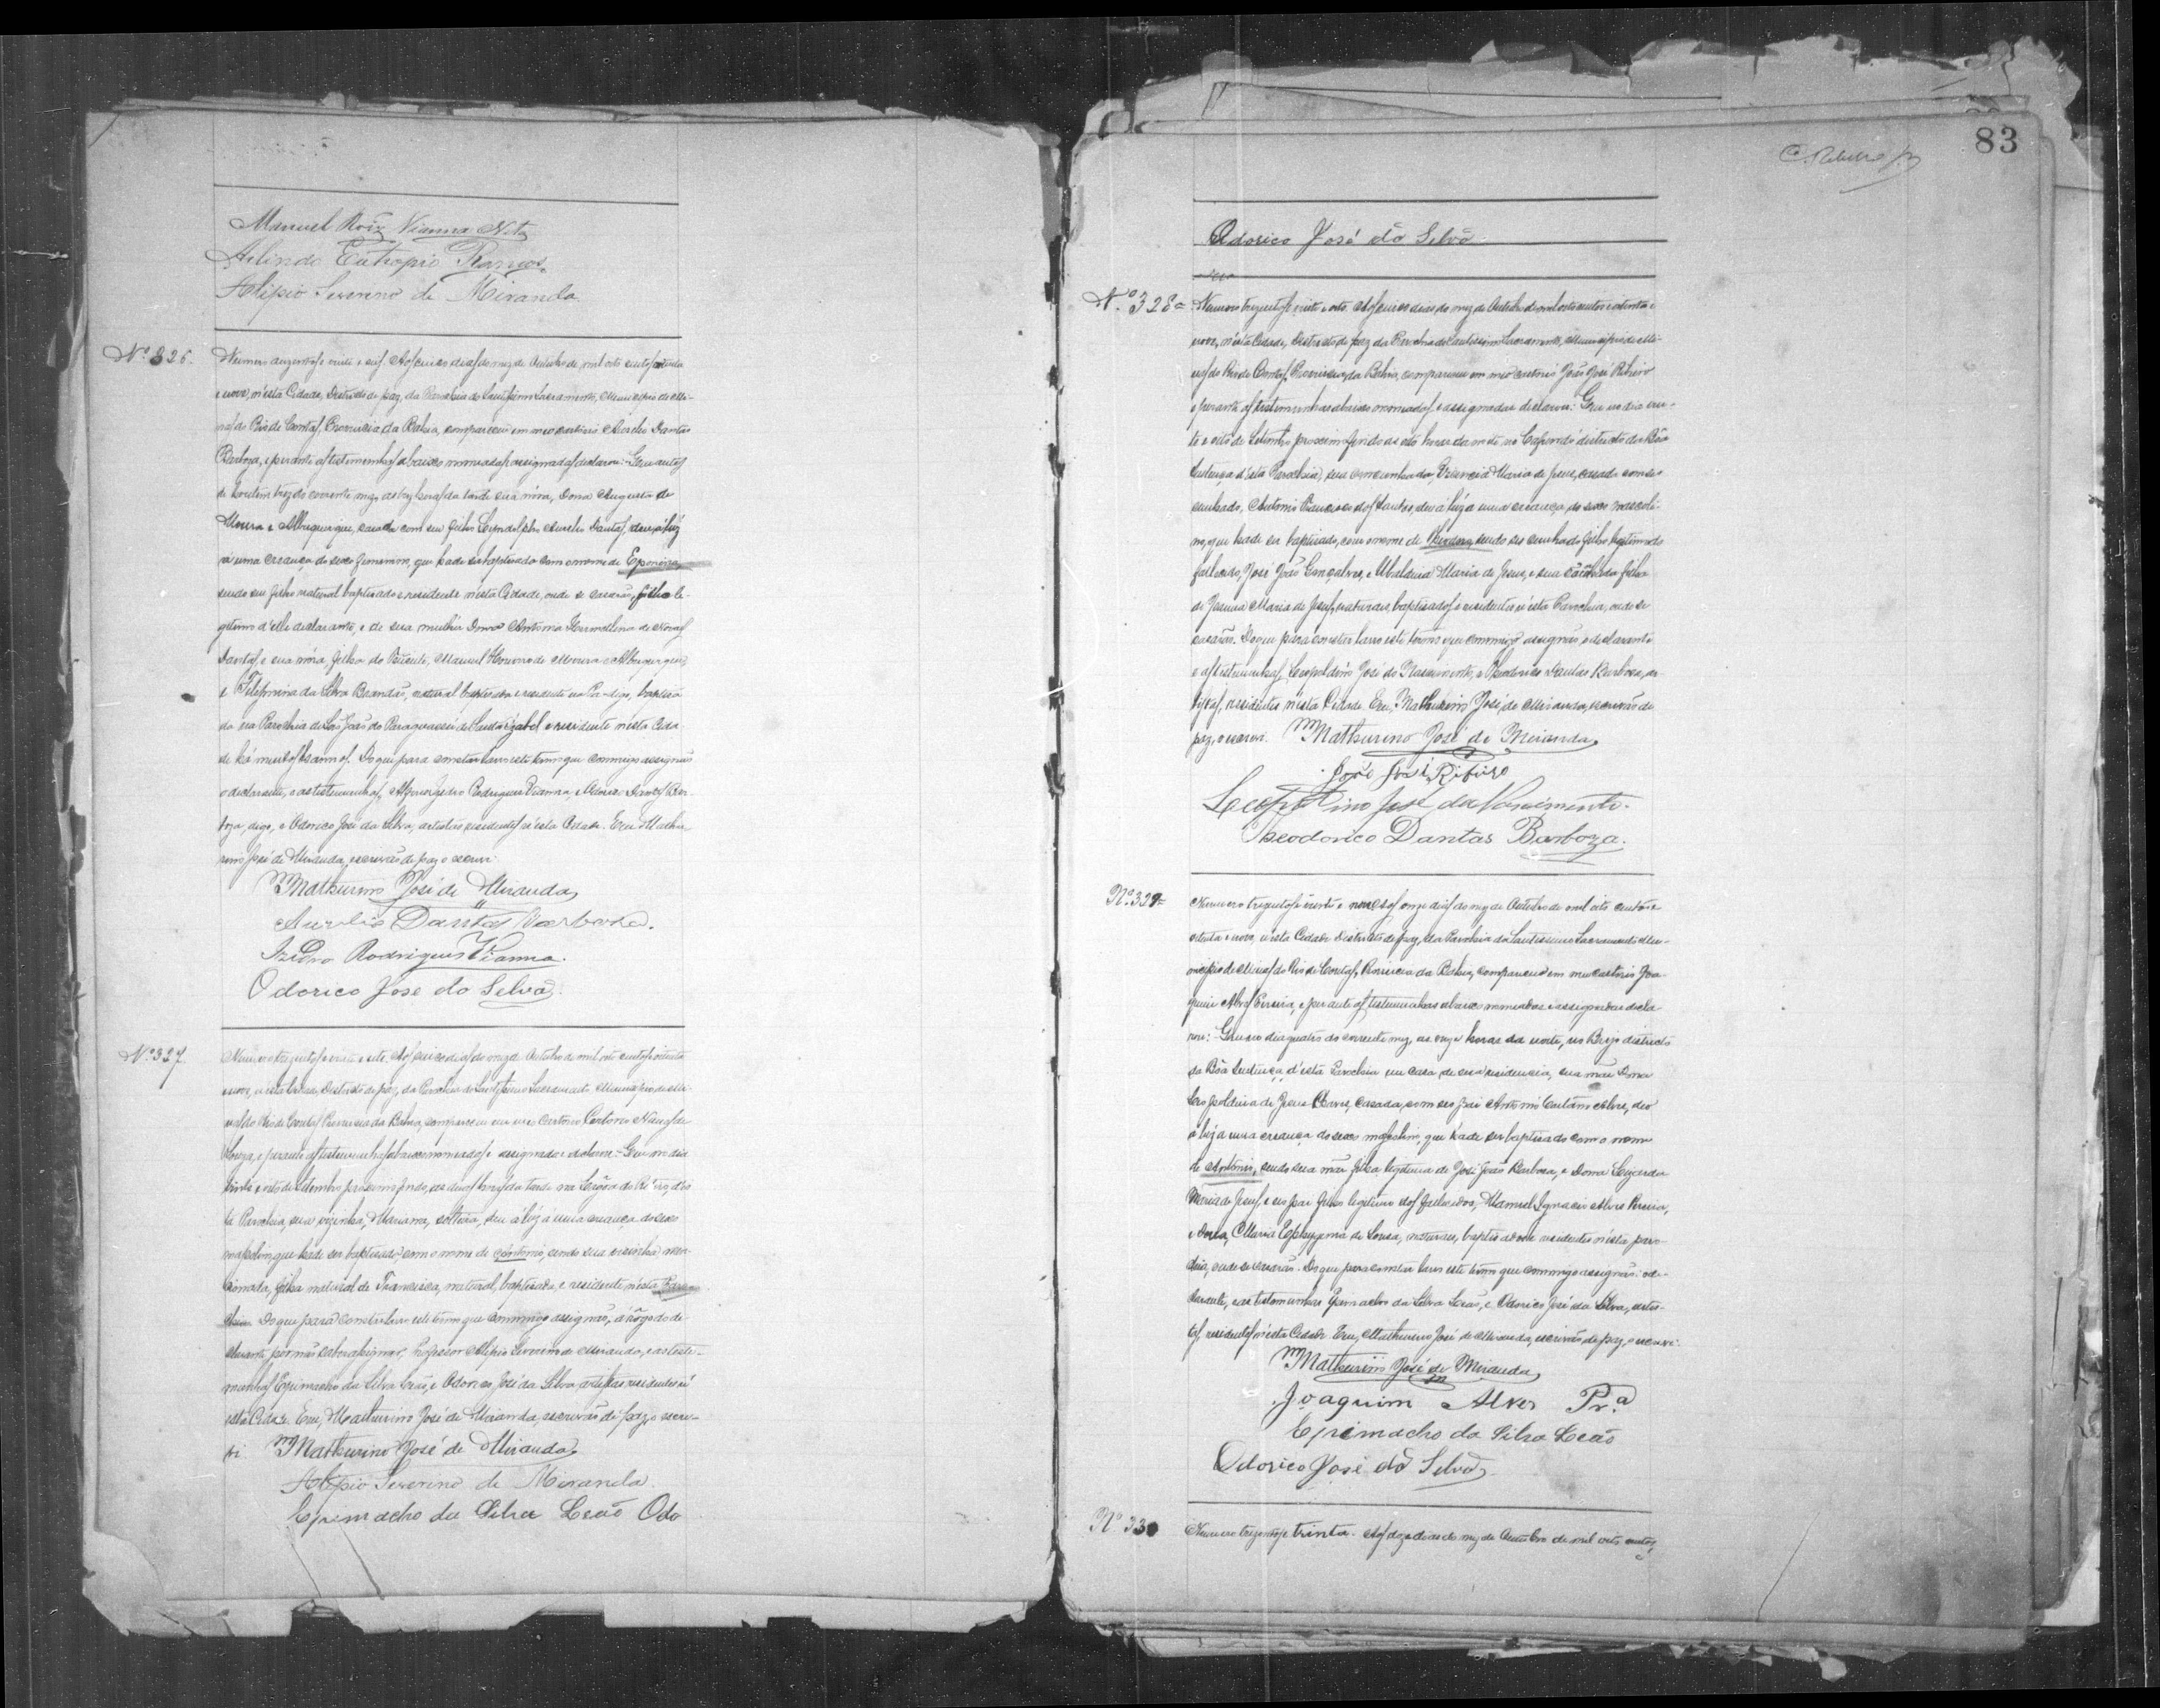 Manuel Roiz Vianna Nto
Arlindo Eutropio Ramos
Alipio Severino de Miranda
Nº 326.
Numero duzentos e vinte e seis Aos cinco dias do mez de Outubro de mil oito centos oitenta
e nove, n'esta Cidade, Districto de paz, da Parochia do Santissimo Sacramento, Municipio de Mi-
nas do Rio de Contas, Provincia da Bahia, compareceu em meo cartorio Aurelio Dantas
Barboza, e perante as testemunhas abaixo nomeadas e assignadas declarou: Que
de hontem trez do corrente mez, as trez horas da tarde sua nóra, Dona Augusta de
Moura e Albuquerque, casada com seu filho Lyndolpho Aurelio Dantas, deu á luz
a uma creança do sexo femenino, que hade ser baptisada com o nome de
sendo seu filho natural baptisado e residente n'esta Cidade, onde se casarão, filho le-
gitimo d'elle declarante, e de sua mulher Dona Antonia de Novaes
Dantas e sua nóra, filha do Manuel de Moura e Albuquerque,
e da Silva Brandão, natural baptisada e residente digo, baptisa
da na Parochia de São João do Paraguassú de Santa Izabel e residente n'esta Cida-
de há muitos annos. Do que para constar lavro este termo que commigo assignão
o declarante, e as testemunhas, Izidro Rodrigues Vianna, e Odorico Dantas Bar-
boza, digo, e Odorico José da Silva, artistas residentes n'esta Cidade. Eu Mathu-
rino José de Miranda, escrivão de paz o escrevi.
Mathurino José de Miranda
Aurelio Dantas Barboza.
Izidro Rodrigues Vianna.
Odorico José da Silva.
Nº 327
Numero trezentos e vinte e sete. Aos cinco dias do mez de Outubro de mil oito centos e oitenta
e nove, n'esta Cidade, Districto de paz, da Parochia do Santissimo Sacramento, Municipio de Mi-
nas do Rio de Contas, Provincia da Bahia, compareceu em meo Cartorio de
Souza, e perante as testemunhas abaixo nomeadas e assignadas declarou: Que no dia
vinte e oito de Setembro proximo findo, as duas horas da tarde na Lagôa do d'es
ta Parochia, sua vizinha, Marianna, solteira, deu á luz a uma creança do sexo
masculino, que hade ser baptisado com o nome de Antonio, sendo sua visinha men-
cionada, filha natural de Francisca, natural, baptisada e residente n'esta Paro-
chia. Do que para constar lavro este termo que commigo assignão, á rôgo do de-
clarante por não saber assignar, Professor Alipio Severino de Miranda, e as teste-
munhas Epimacho da Silva Leão, e Odorico José da Silva artistas residentes n'
esta Cidade. Eu, Mathurino José de Miranda, escrivão de paz, o escre-
vi. Mathurino José de Miranda
Alipio Severino de Miranda.
Epimacho da Silva Leão Odo
83
Odorico José da Silva
Nº 328=
Numero trezentos e vinte e oito. Aos cinco dias do mez de Outubro de mil oito centos e oitenta e
nove, n'esta Cidade, Districto de paz da Parochia do Santissimo Sacramento, Municipio de Mi-
nas do Rio de Contas, Provincia da Bahia, compareceu em meo cartorio João José Ribeiro
e perante as testemunhas abaixo nomeadas e assignadas declarou: Que no dia vin-
te e oito de Setembro proximo findo as oito horas da noite, no districto da Bôa
Sentença d'esta Parochia, sua cunhada, Maria de Jesus, casada com seo
cunhado, Antonio Francisco dos Santos, deu á luz a uma creança, do sexo masculi-
no, que hade ser baptisado, com o nome de Theodoro, sendo seo cunhado filho legitimo dos
fallecidos, José João Gonçalves, e Ubaldina Maria de Jesus, e sua cunhada filha
de Maria de Jesus, naturaes, baptisados e residentes n'esta Parochia, onde se
casarão. Do que para constar lavro este termo que commigo assignão, o declarante
e as testemunhas, Leopoldino José do Nascimento, e Theodorico Dantas Barboza, ar-
tistas, residentes n'esta Cidade. Eu, Mathurino José de Miranda, escrivão de
paz, o escrevi. Mathurino José de Miranda,
José José Ribeiro
Leopoldino José do Nascimento.
Theodorico Dantas Barboza.
Nº 329=
Numero trezentos e vinte e nove. Aos onze dias do mez de Outubro de mil oito centos e
oitenta e nove, n'esta Cidade Districto de paz, da Parochia do Santissimo Sacramento Mu-
nicipio de Minas do Rio de Contas, Provincia da Bahia, compareceu em meu cartorio Joa-
quim Alves Pereira, e perante as testemunhas abaixo nomeadas e assignadas decla-
rou: Que no dia quatro do corrente mez, as onze horas da noite, no Brejo districto
da Bôa Sentença d'esta Parochia em casa de sua residencia, sua mãe Dona
Leopoldina de Jesus Chaves, casada, com seo pai Antonio Caetano Alves, deo
á luz a uma creança do sexo masculino, que hade ser baptisado com o nome
de Antonio, sendo sua mãe filha legitima de José João Barboza, e Dona
Maria de Jesus, e seo pai filho legitimo dos fallecidos, Manuel Ignacio Alves Pereira,
e Dona, Maria Ephygenia de Sousa, naturaes, baptisados e residentes n'esta paro-
chia, onde se casarão. Do que para constar lavro este termo que commigo assignão: o de-
clarante, e as testemunhas Epimacho da Silva Leão, e Odorico José da Silva, artis-
tas, residentes n'esta Cidade. Eu, Mathurino José de Miranda, escrivão de paz, o escrevi.
Mathurino José de Miranda
Joaquim Alves Pr.ª
Epimacho da Silva Leão
Odorico José da Silva
Nº 330
Numero trezentos e trinta. Aos doze dias do mez de Outubro de mil oito centos